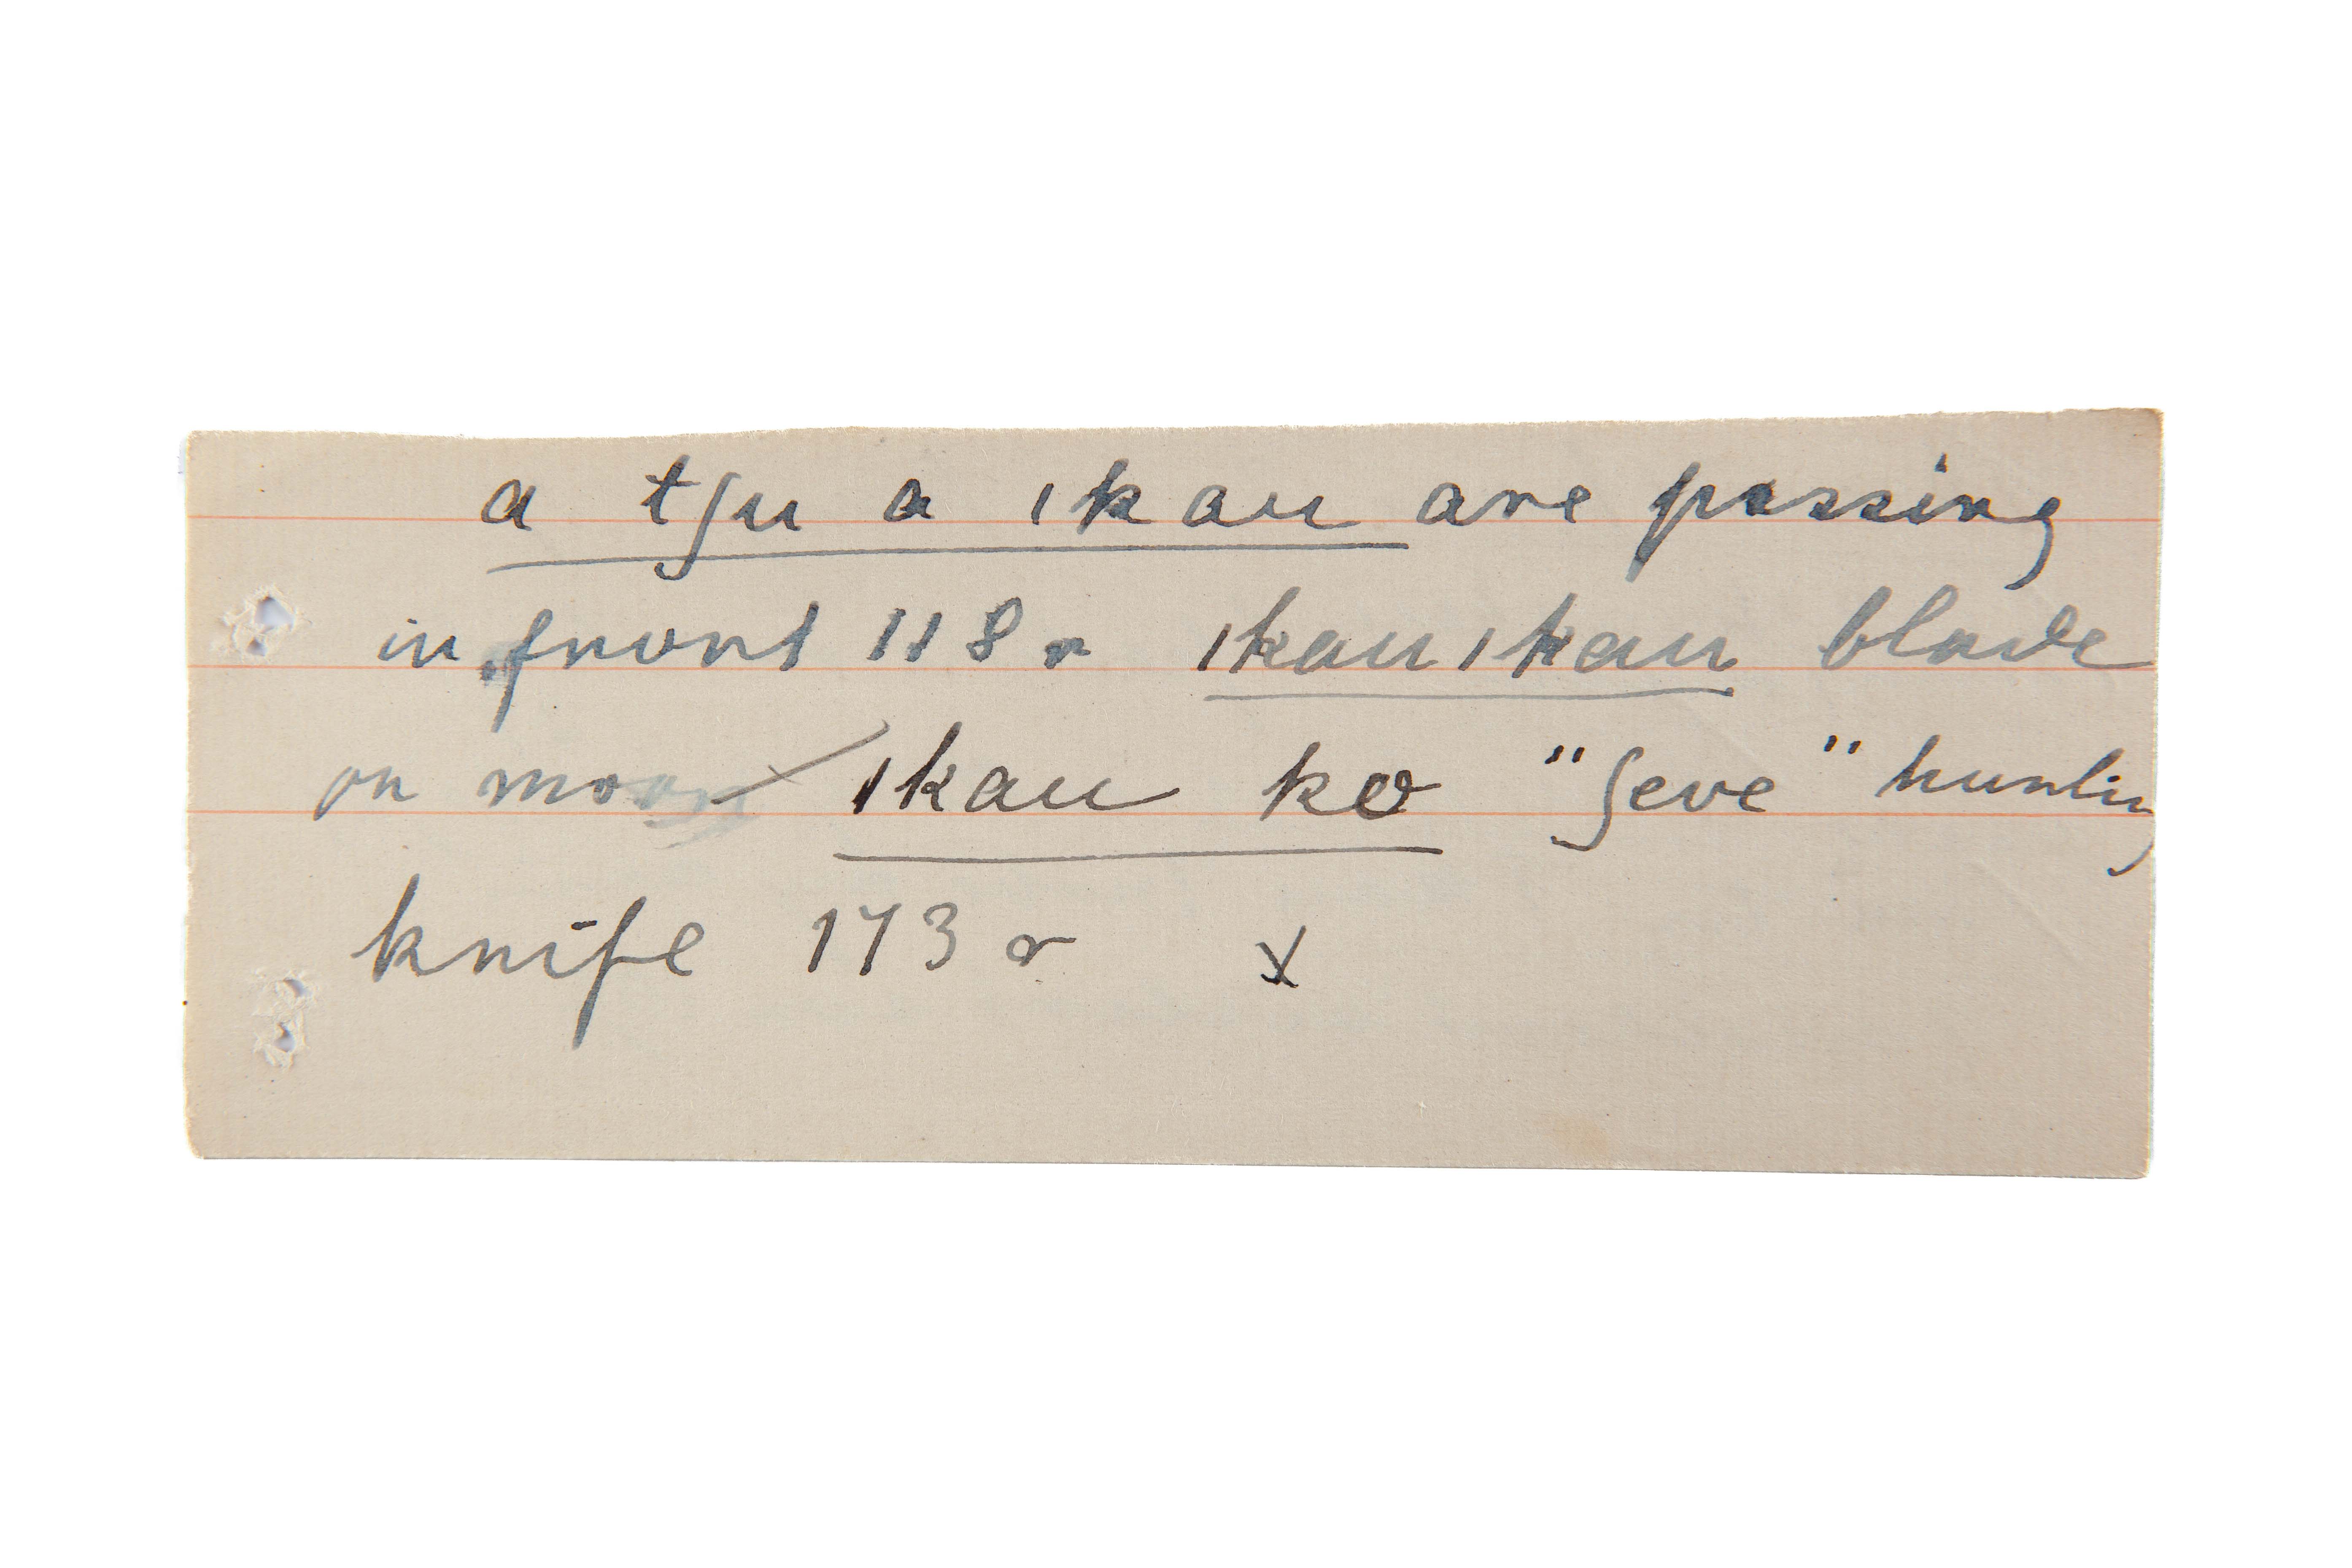 a tʃu a ıkau are passing
in front 118 r ıkauıkau blade
on moon ıkau ko "ʃeve" hunting
knife 173 r x